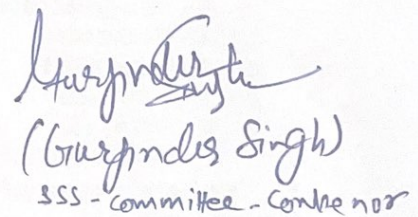 Gurpinder Singh
(Gurpinder Singh)
SSS - Committee - Convenor